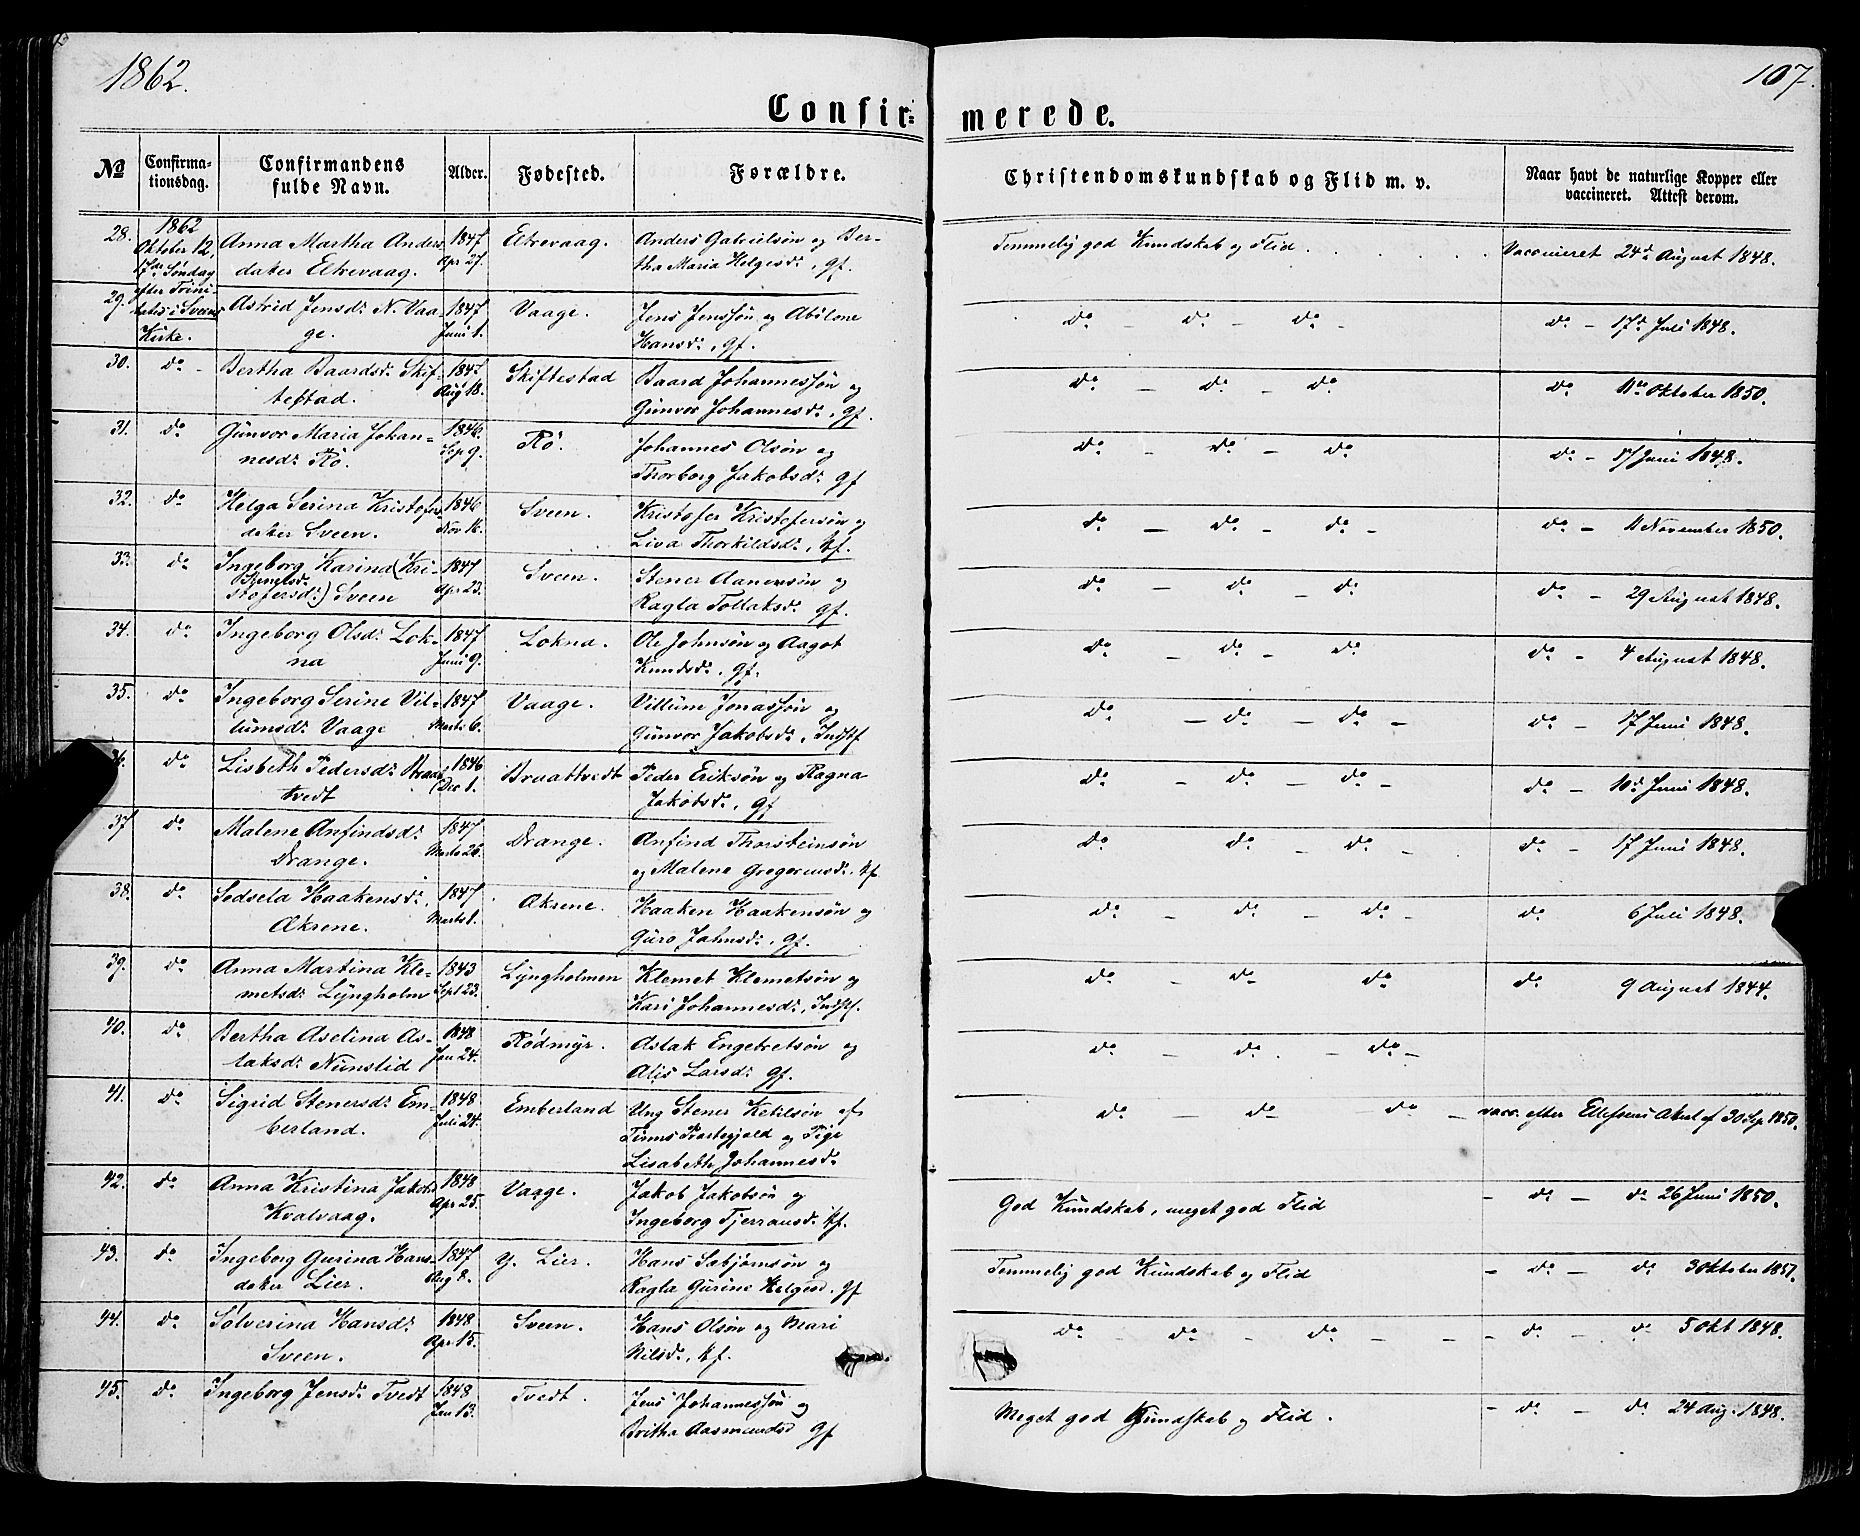 1862.
107.
Confir=merede.
No
Confirma-
tionsdag.
Confirmandens
fulde Navn.
Alder.
Fødested.
Forældre.
Christendomskundskab og Flid m. v.
Naar havt de naturlige Kopper eller
vaccineret. Attest derom.
28. 1862 Anna Martha Anders 1847 Eltrevaag. Anders Gabrielsøn og Ber-
Oktober 12, dater Eltrevaag. Apr 27. tha Maria Helgesd:, gf.
17de Søndag
Temmelig god Kundskab og Flid . . . . . Vaccineret 24d August 1848.
29. efter Trini- Astrid Jensd: N. Vaa- 1847 Vaage. Jens Jenssøn og Abilone
tatis i Sveens ge. Juni 1. Hansd:, gf.
Kirke.
do - do - do - do - 17d Juli 1848.
30. do - Bertha Baardsd: Skif- 1847 Skiftestad Baard Johannessøn og
testad. Aug 18. Gunvor Johannesd:, gf.
do - do - do do 11te Oktober 1850.
31. do Gunvor Maria Johan- 1846. Rö. Johannes Olsøn og
nesd: Rö. Sep 9. Thorborg Jakobsd: gf
do - do - do do - 17 Juni 1848.
32. do Helga Serina Kristofers 1846 Sveen. Kristofer Kristofersøn og
dater Sveen. Nov 16. Liva Thorkildsd:, kf.
do - do - do - do - 11 November 1850.
33. do Ingeborg Karina (Kri- 1847 Sveen. Stener Aanensøn og
Stenersd:
stofersd:) Sveen Apr 23. Ragla Tollaksd: gf.
do - do - do do - 29 August 1848.
34. do Ingeborg Olsd: Lok- 1847 Lokna. Ole Johnsøn og Aagot
na Juni 9. Knudsd:, gf.
do - do - do do - 4 August 1848.
35. do Ingeborg Serine Vil- 1847 Vaage. Villum Jonassøn og
lumsd: Vaage Marts 6. Gunvor Jakobsd:, Indstf
do - do - do - do - 17 Juni 1848.
36. do Lisbeth Pedersd: Braat- 1846 Braattvedt Peder Eriksøn og Ragna
tvedt Dec 1. Jakobsd:, gf
do - do - do - do - 10d Juni 1848.
37 do Malene Anfindsd: 1847 Drange. Anfind Thorsteinsøn
Drange. Marts 26. og Malene Gregoriusd:, kf
do do - do - do - 17 Juni 1848.
38. do Sedsela Haakensd:, 1847 Akrene. Haaken Haakensøn og
Akrene. Marts 1. Guro Jahnsd:, gf.
do - do - do - do 6 Juli 1848.
39. do Anna Martina Kle- 1843 Lyngholmen Klemet Klemetsøn og
metsd: Lyngholm Sept 23. Kari Johannesd:, Indstf.
do - do do do 9 August 1844.
40. do Bertha Aselina As- 1848 Rödmyr. Aslak Engebretsøn og
laksd: Nunslid Jan 24. Alis Larsd: gf.
do - do . - do -
41. do Sigrid Stenersd: Em- 1848 Emberland Ung Stener Ketilsøn af
berland. Juli 24. Finns Præstegjeld og Pige
Lisabeth Johannesd:
do - do - do - vacc. efter Ellefsens Attest af 30 Sep 1850.
42. do Anna Kristina Jakobs 1848 Vaage. Jakob Jakobsøn og
Kvalvaag. Apr 25. Ingeborg Tjerransd: kf.
God Kundskab, meget god Flid - do - do 26 Juni 1850.
43. do Ingeborg Gurina Hans- 1847 Y. Lier. Hans Sebjørnsøn og
dater Lier. Aug 8. Ragla Gurine Helgesd. gf
Temmelig god Kundskab og Flid - do - do 3 Oktober 1851.
44. do Sølverina Hansd: 1848 Sveen. Hans Olsøn og Mari
Sveen. Apr 15. Nilsd:, kf.
do - do - do - - - do - do 5 Okt 1848.
45. do Ingeborg Jensd: Tvedt 1848 Tvedt. Jens Johannessøn og
Jan 13. Britha Aasmundsd gf
Meget god Kundskab og Flid . - do - do 24 Aug. 1848.